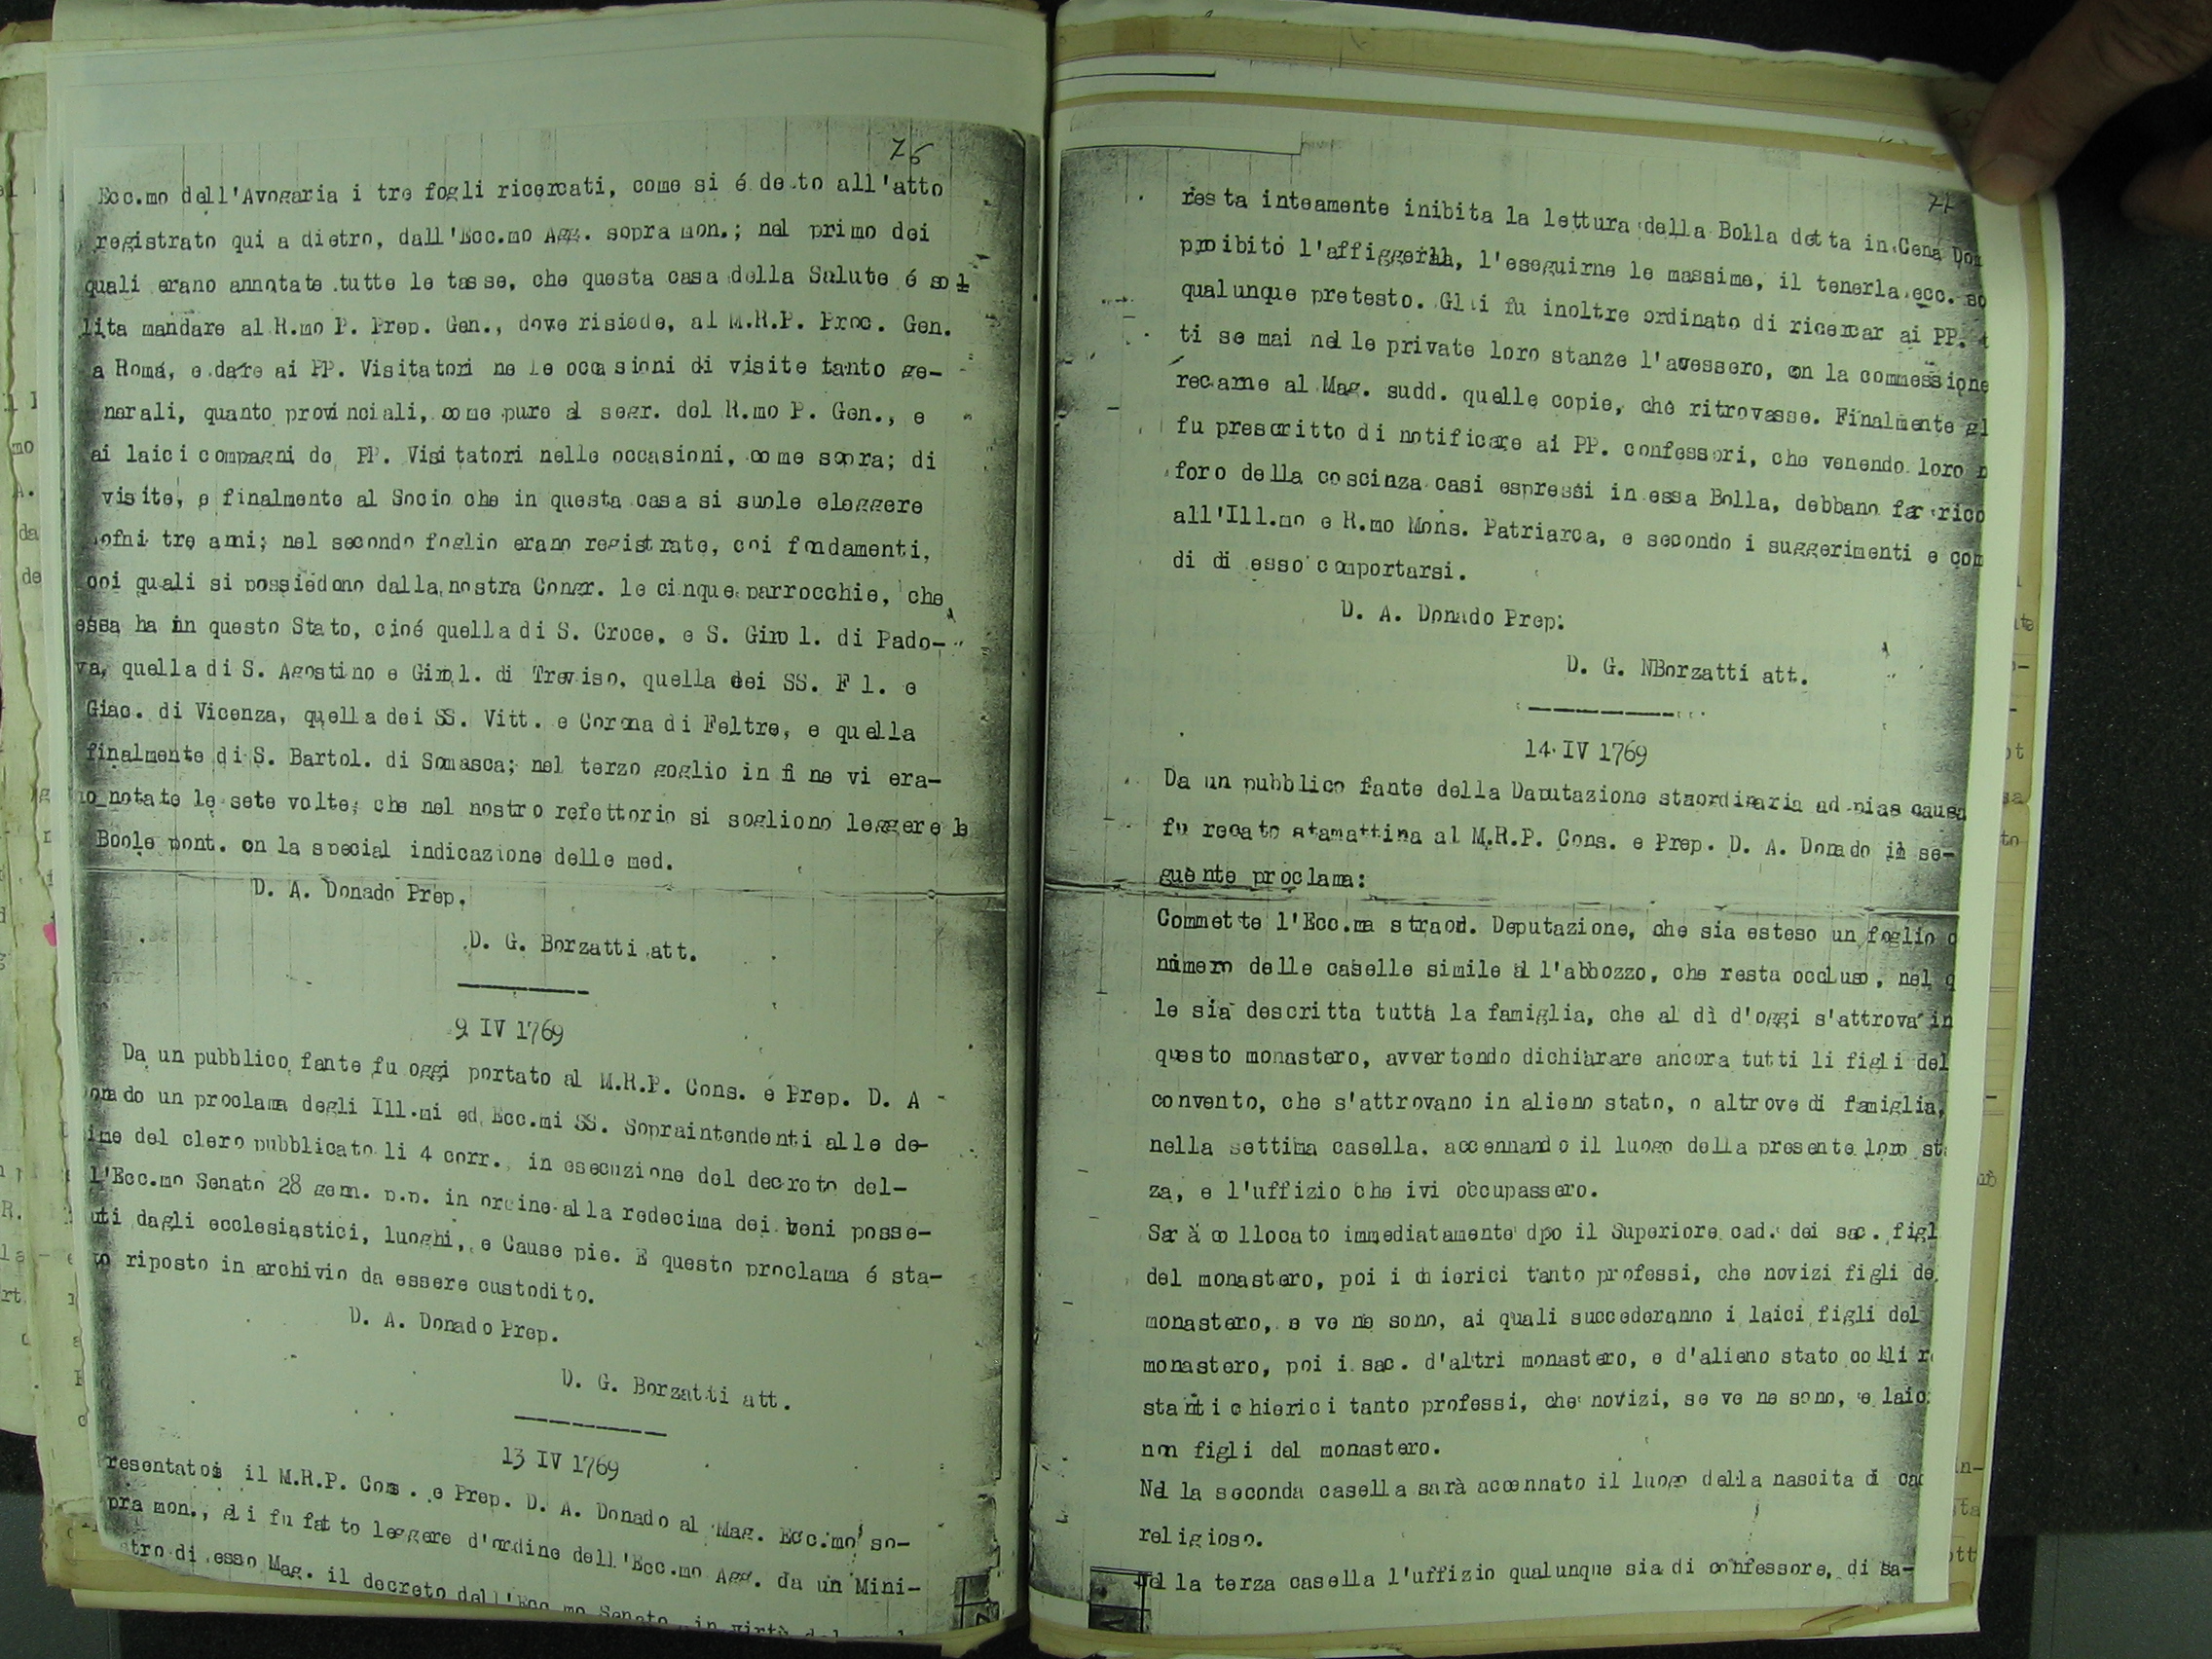 76
Ecc.mo dell'Avogaria i tre fogli ricercati, come si é detto all'atto
registrato qui a dietro, dall'Ecc.mo Agg. sopra mon.; nel primo dei
quali erano annotate tutte le tasse, che questa casa della Salute é sol
lita mandare al R.mo P. Prep. Gen., dove risiede, al M.R.P. Proc. Gen.
a Roma, e dare ai PP. Visitatori ne le occasioni di visite tanto ge-
nerali, quanto provinciali, come pure al segr. del R.mo P. Gen., e
ai laici compagni de PP. Visitatori nelle occasioni, come sopra; di
visite, e finalmente al Socio che in questa casa si suole eleggere
ofni tre anni; nel secondo foglio erano registrate, coi fondamenti,
coi quali si possiedono dalla nostra Congr. le cinque parrocchie, che
essa ha in questo Stato, cioé quella di S. Croce, e S. Girol. di Pado-
va, quella di S. Agostino e Girol. di Treviso, quella dei SS. F l. e
Giac. di Vicenza, quella dei SS. Vitt. e Corona di Feltre, e quella
finalmente di S. Bartol. di Somasca; nel terzo goglio in fine vi era-
no notate le sete volte, che nel nostro refettorio si sogliono leggere le
Boole pont. on la special indicazione delle med.
D. A. Donado Prep.
D. G. Borzatti att.
9 IV 1769
Da un pubblico fante fu oggi portato al M.R.P. Cons. e Prep. D. A
onado un proclama degli Ill.mi ed Ecc.mi SS. Sopraintendenti alle de-
ime del clero pubblicato li 4 corr., in esecuzione del decreto del-
l'Ecc.mo Senato 28 genn. p.p. in ordine alla redecima dei beni posse-
uti dagli ecclesiastici, luoghi, e Cause pie. E questo proclama é sta-
to riposto in archivio da essere custodito.
D. A. Donado Prep.
D. G. Borzatti att.
13 IV 1769
resentatosi il M.R.P. Cons. e Prep. D. A. Donado al Mag. Ecc.mo so-
pra mon., gli fu fatto leggere d'ordine dell'Ecc.mo Agg. da un Mini-
stro di esso Mag. il decreto dell'Ecc.mo Senato, in virtù del
77
resta inteamente inibita la lettura della Bolla detta in Cena Dom
proibito l'affiggerla, l'eseguirne le massime, il tenerla ecc. so
qualunque pretesto. Gli fu inoltre ordinato di ricercar ai PP.
ti se mai nelle private loro stanze l'avessero, on la commessione
recarne al Mag. sudd. quelle copie, che ritrovasse. Finalmente gl
fu prescritto di notificare ai PP. confessori, che venendo loro n
foro della coscinza casi espressi in essa Bolla, debbano far rico
all'Ill.mo e R.mo Mons. Patriarca, e secondo i suggerimenti e com
di di esso comportarsi.
D. A. Donado Prep.
D. G. NBorzatti att.
14 IV 1769
Da un pubblico fante della Daputazione staordinaria ad pias causa
fu recato stamattina al M.R.P. Cons. e Prep. D. A. Donado il se-
guente proclama:
Commette l'Ecc.ma straord. Deputazione, che sia esteso un foglio c
numero delle caselle simile al l'abbozzo, che resta occluso, nel q
le sia descritta tutta la famiglia, che al dì d'oggi s'attrova in
questo monastero, avvertendo dichiarare ancora tutti li figli del
convento, che s'attrovano in alieno stato, o altrove di famiglia,
nella settima casella, accennando il luogo della presente loro st
za, e l'uffizio che ivi occupassero.
Sarà collocato immediatamente dpo il Superiore cad. dei sac. figl
del monastero, poi i chierici tanto professi, che novizi figli de
monastero, e ve ne sono, ai quali succederanno i laici figli del
monastero, poi i sac. d'altri monastero, e d'alieno stato colli re
stanti chierici tanto professi, che novizi, se ve ne sono, e laic
non figli del monastero.
Nel la seconda casella sarà accennato il luogo della nascita di cad
religioso.
Nel la terza casella l'uffizio qualunque sia di confessore, di sa-